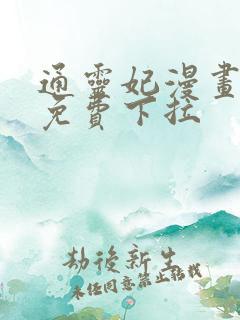 通靈妃漫畫
免費下拉
劫後新生
未任同意禁止轉載